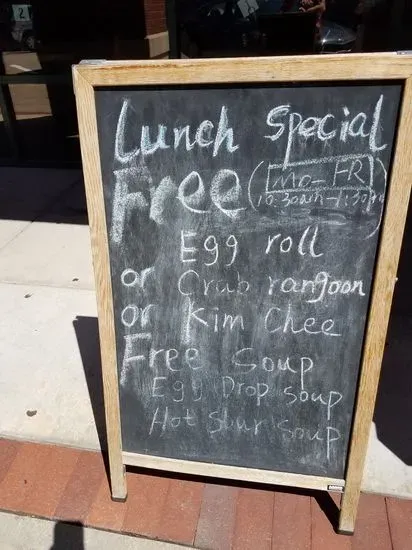 2
Lunch Special
Free (Mo-FR
10:30am-1:30pm)
Egg roll
or Crab rangoon
or Kim Chee
Free Soup
Egg Drop soup
Hot Sour Soup